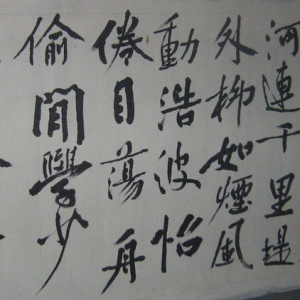 河連千里堤
外柳如煙風
動浩波怡
倦目蕩舟
偷閒學少